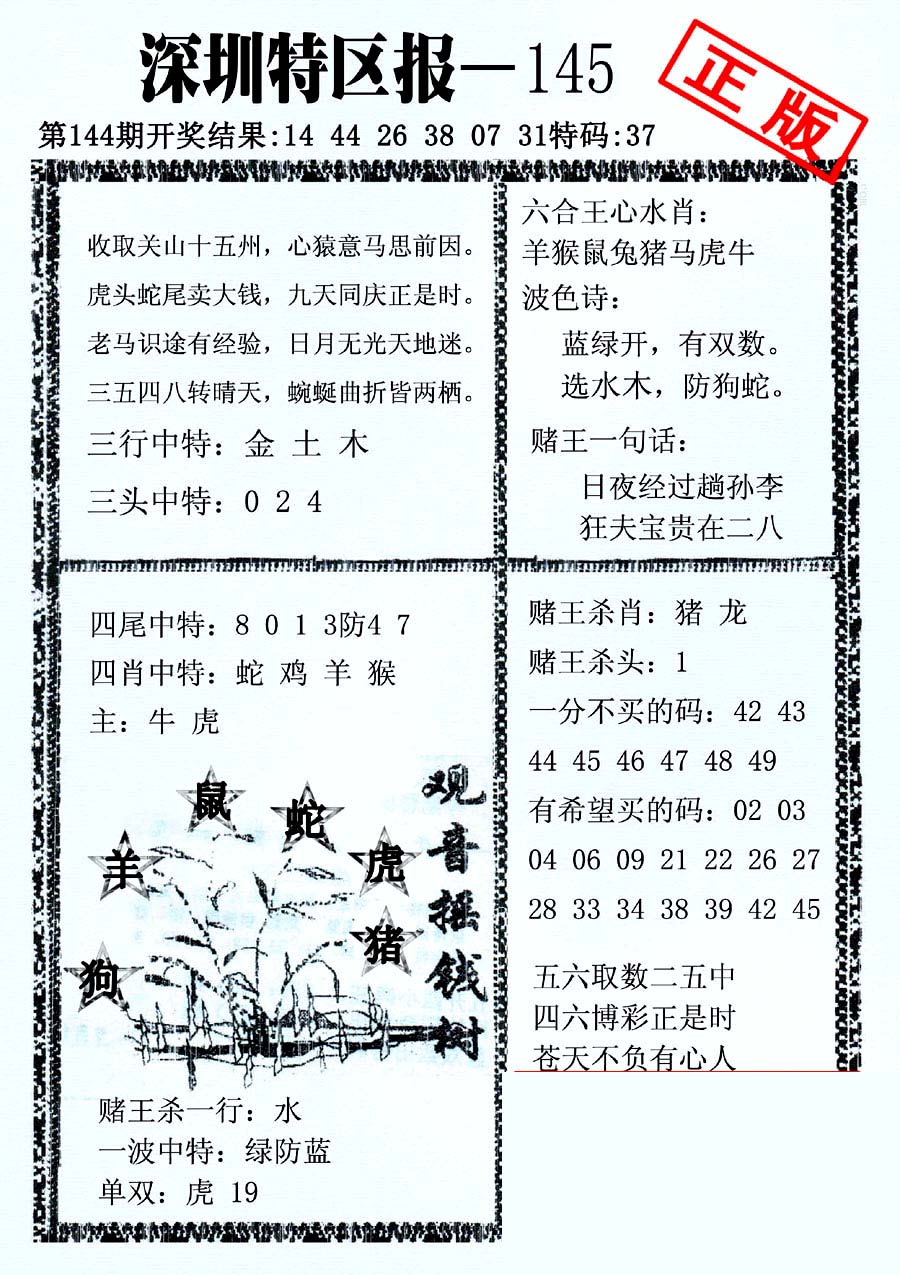 深圳特区报—145
正版
第144期开奖结果:14 44 26 38 07 31特码:37
收取关山十五州，心猿意马思前因。
虎头蛇尾卖大钱，九天同庆正是时。
老马识途有经验，日月无光天地迷。
三五四八转晴天，蜿蜒曲折皆两栖。
三行中特：金 土 木
三头中特：0 2 4
六合王心水肖：
羊猴鼠兔猪马虎牛
波色诗：
蓝绿开，有双数。
选水木，防狗蛇。
赌王一句话：
日夜经过趟孙李
狂夫宝贵在二八
四尾中特：8 0 1 3防4 7
四肖中特：蛇 鸡 羊 猴
主：牛 虎
鼠
蛇
羊
虎
猪
狗
观音摇钱树
赌王杀一行：水
一波中特：绿防蓝
单双：虎 19
赌王杀肖：猪 龙
赌王杀头：1
一分不买的码：42 43
44 45 46 47 48 49
有希望买的码：02 03
04 06 09 21 22 26 27
28 33 34 38 39 42 45
五六取数二五中
四六博彩正是时
苍天不负有心人